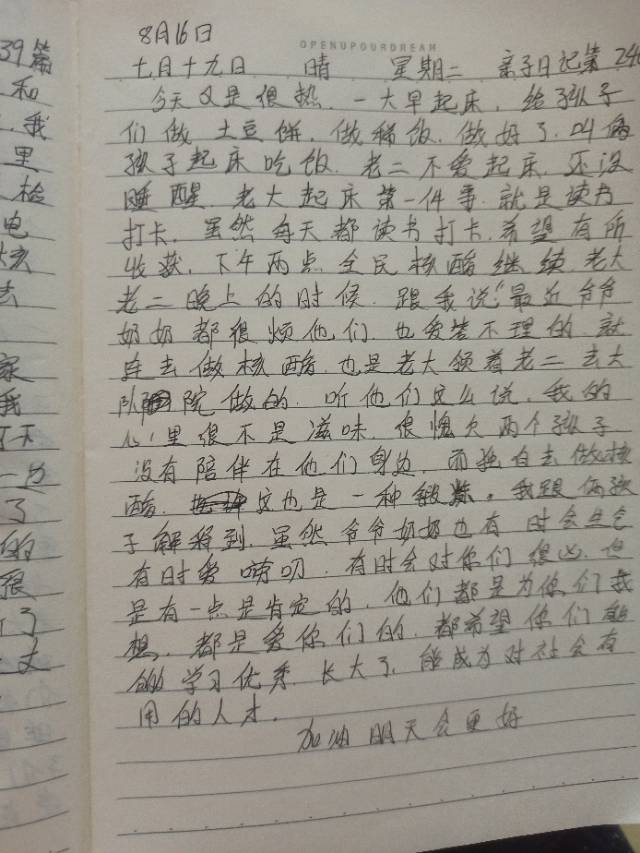 8月16日
OPENUPOURDREAM
七月十九日 晴 星期二 亲子日记第24
今天又是很热.一大早起床.给孩子
们做土豆饼.做稀饭.做好了.叫俩
孩子起床吃饭.老二不爱起床.还没
睡醒.老大起床第一件事.就是读书
打卡.虽然每天都读书打卡.希望有所
收获.下午两点.全民核酸继续.老大
老二晚上的时候.跟我说:"最近爷爷
奶奶都很烦他们.也爱答不理的.就
连去做核酸.也是老大领着老二去大
队院做的.听他们这么说.我的
心里很不是滋味.很愧欠两个孩子
没有陪伴在他们身边.而独自去做核
酸.这也是一种锻炼。我跟俩孩
子解释到.虽然爷爷奶奶也有时会生气
有时爱唠叨.有时会对你们很凶.但
是有一点是肯定的.他们都是为你们我
想.都是爱你们的.都希望你们能
的学习优秀.长大了.能成为对社会有
用的人才.
加油明天会更好
39篇
和
.我
里
检
电
核
去
家
我
打不
一分
了
的
很
了
丈